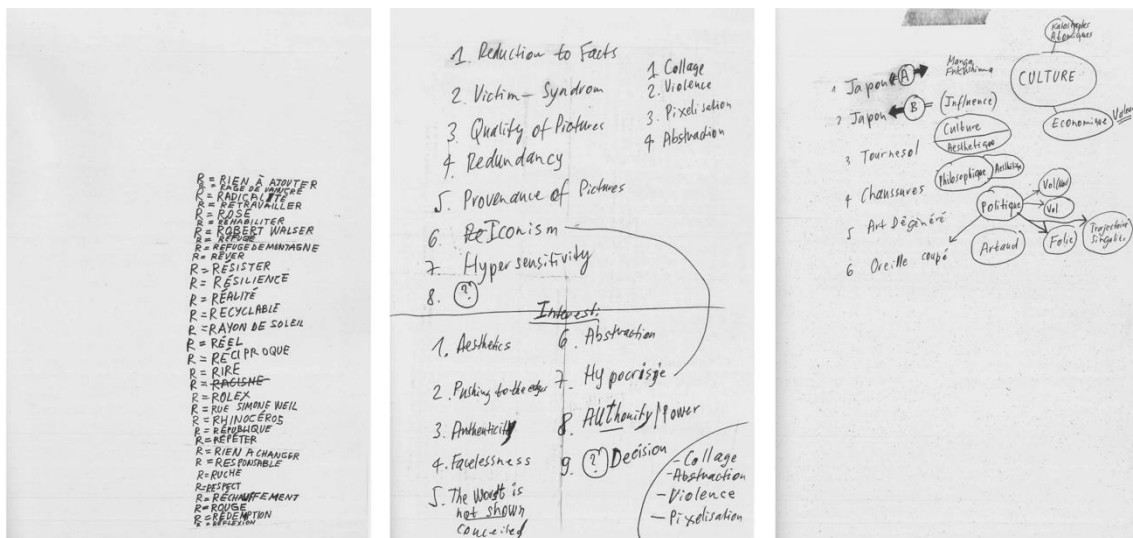 R = RIEN À AJOUTER
R = RAGE DE VAINCRE
R = RADICALITÉ
R = RETRAVAILLER
R = ROSE
R = RÉHABILITER
R = ROBERT WALSER
R = REFUGIÉ
R = REFUGE DE MONTAGNE
R = RÊVER
R = RÉSISTER
R = RÉSILIENCE
R = RÉALITÉ
R = RECYCLABLE
R = RAYON DE SOLEIL
R = RÉEL
R = RÉCIPROQUE
R = RIRE
R = RACISME
R = ROLEX
R = RUE SIMONE WEIL
R = RHINOCÉROS
R = RÉPUBLIQUE
R = RÉPÉTER
R = RIEN A CHANGER
R = RESPONSABLE
R = RUCHE
R = RESPECT
R = RÉCHAUFFEMENT
R = ROUGE
R = RÉDEMPTION
R = RÉFLEXION
1. Reduction to Facts
2. Victim-Syndrom
3. Quality of Pictures
4. Redundancy
5. Provenance of Pictures
6. Iconism
7. Hypersensitivity
8. ?
1 Collage
2. Violence
3. Pixelisation
4 Abstraction
Interest:
1. Aesthetics
2. Pushing to the edge
3. Authenticity
4. Facelessness
5. The worst is
not shown
concerned
6. Abstraction
7. Hypocrisie
8. Authority/Power
9. ? Decision
- Collage
- Abstraction
- Violence
- Pixelisation
Atomiques
CULTURE
Economique
1 Japon A Manga
Fukushima
2 Japon B = (Influence)
Culture
Aesthetique
3 Tournesol
4 Chaussures Philosophique
5 Art Dégénéré
Politique
Vol
Vol
Artaud
Folie
Trajectoire
Singulier
6 Oreille coupé